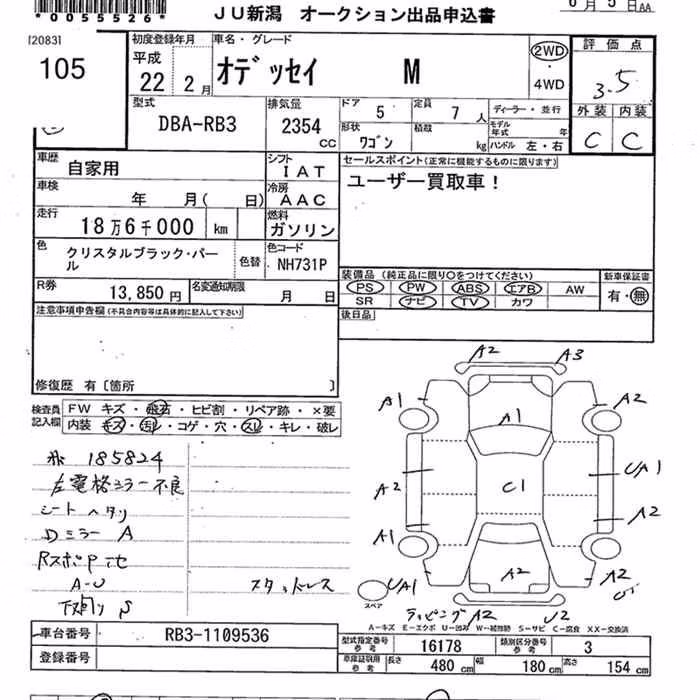 *0055526*
JU新潟 オークション出品申込書
6月5日AA
[2083]
105
初度登録年月
平成
22 2月
車名・グレード
オデッセイ M
2WD
・
4WD
評価点
3.5
外装 内装
C C
型式
DBA-RB3
排気量
2354 CC
ドア 5
定員 7人
ディーラー・並行
形状
ワゴン
積載 kg
モデル年式 年
ハンドル 左・右
車歴
自家用
シフト
IAT
セールスポイント(正常に機能するものに限ります)
ユーザー買取車！
車検
年 月( 日)
冷房
AAC
走行
18万6千000 km
燃料
ガソリン
色
クリスタルブラック・パール
色替
色コード
NH731P
装備品 (純正品に限り○をつけてください)
PS PW ABS エアB AW
SR ナビ TV カワ
新車保証書
有・無
R券
13,850円
名変通知期限
月 日
後日品
注意事項申告欄(不具合内容等は具体的に記入して下さい)
修復歴 有〔箇所 〕
検査員記入欄
FW キズ・飛石・ヒビ割・リペア跡・×要
内装 キズ・汚れ・コゲ・穴・スレ・キレ・破れ
185824
左電格ミラー不良
シートヘタリ
Dミラー A
A-U
下廻り S
スタッドレス
A2 A3
A1 A2
A1
UA1
A2 C1 A2
A1
A2 A2
UA1
スペア
ラッピング A2 U2
A-キズ E-エクボ U-凹み W-補修跡 S-サビ C-腐食 XX-交換済
車台番号
RB3-1109536
型式指定番号
参考
16178
類別区分番号
参考
3
登録番号
車庫証明用
参考
長さ 480 cm
幅 180 cm
高さ 154 cm